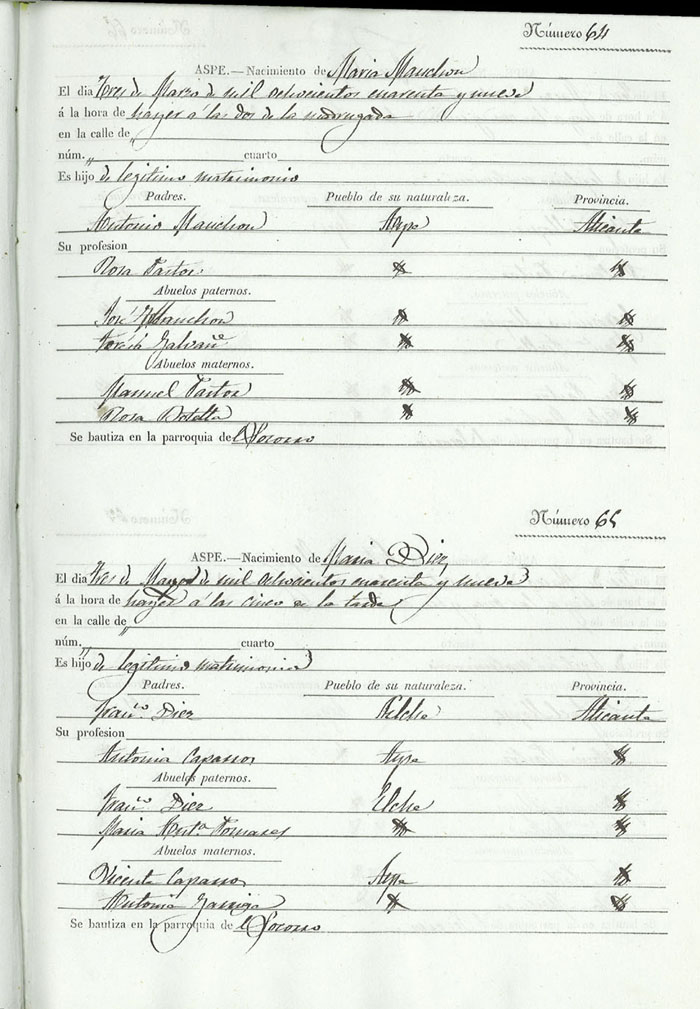 Número 64
ASPE.—Nacimiento de Maria Manchon
El dia tres de Marzo de mil ochocientos cuarenta y nueve
á la hora de hayer á las dos de la madrugada
en la calle de „
núm. „ cuarto
Es hijo de legitimo matrimonio
Padres. Pueblo de su naturaleza. Provincia.
Antonio Manchon Aspe Alicante
Su profesion
Rosa Pastor
Abuelos paternos.
José Manchon
Teresa Galvañ
Abuelos maternos.
Manuel Pastor
Rosa Botella
Se bautiza en la parroquia del Socorro
Número 65
ASPE.—Nacimiento de Maria Diez
El dia tres de Marzo de mil ochocientos cuarenta y nueve
á la hora de hayer á las cinco de la tarde
en la calle de „
núm. „ cuarto
Es hijo de legitimo matrimonio
Padres. Pueblo de su naturaleza. Provincia.
Franco. Diez Elche Alicante
Su profesion
Antonia Caparros Aspe
Abuelos paternos.
Franco. Diez Elche
Maria Anta. Pomares
Abuelos maternos.
Vicente Caparros Aspe
Antonia
Se bautiza en la parroquia del Socorro